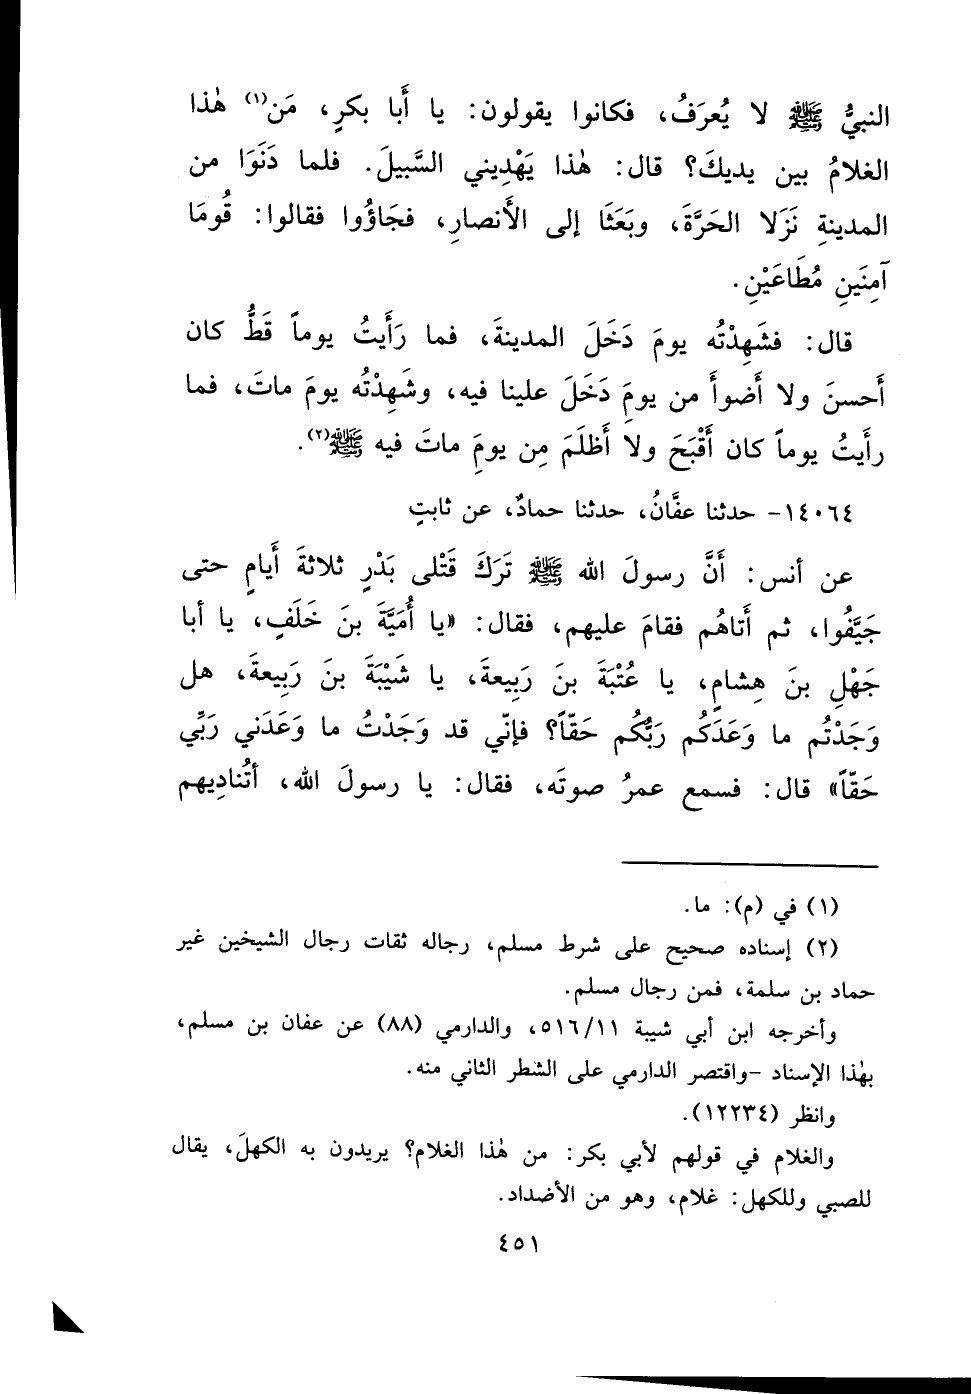 النبيُّ ﷺ لا يُعرَفُ، فكانوا يقولون: يا أَبا بكرٍ، مَن(١) هٰذا
الغلامُ بين يديكَ؟ قال: هٰذا يَهْدِيني السَّبيلَ. فلما دَنَوَا من
المدينةِ نَزَلا الحَرَّةَ، وبَعَثَا إلى الأَنصارِ، فجَاؤُوا فقالوا: قُومَا
آمِنَينِ مُطَاعَيْنِ.
قال: فشَهِدْتُه يومَ دَخَلَ المدينةَ، فما رَأَيتُ يوماً قَطُّ كان
أَحسنَ ولا أَضوأَ من يومِ دَخَلَ علينا فيه، وشَهِدْتُه يومَ ماتَ، فما
رأَيتُ يوماً كان أَقْبَحَ ولا أَظلَمَ مِن يومِ ماتَ فيه ﷺ(٢).
١٤٠٦٤- حدثنا عفَّانُ، حدثنا حمادٌ، عن ثابتٍ
عن أنس: أَنَّ رسولَ الله ﷺ تَرَكَ قَتْلى بَدْرٍ ثلاثةَ أَيامٍ حتى
جَيَّفُوا، ثم أَتاهُم فقامَ عليهم، فقال: «يا أُمَيَّةَ بنَ خَلَفٍ، يا أبا
جَهْلِ بنَ هِشامٍ، يا عُتْبَةَ بنَ رَبِيعةَ، يا شَيْبَةَ بنَ رَبِيعةَ، هل
وَجَدْتُم ما وَعَدَكُم رَبُّكُم حَقّاً؟ فإنّي قد وَجَدْتُ ما وَعَدَني رَبِّي
حَقّاً» قال: فسمع عمرُ صوتَه، فقال: يا رسولَ الله، أتُنادِيهم
(١) في (م): ما.
(٢) إسناده صحيح على شرط مسلم، رجاله ثقات رجال الشيخين غير
حماد بن سلمة، فمن رجال مسلم.
وأخرجه ابن أبي شيبة ٥١٦/١١، والدارمي (٨٨) عن عفان بن مسلم،
بهٰذا الإسناد -واقتصر الدارمي على الشطر الثاني منه.
وانظر (١٢٢٣٤).
والغلام في قولهم لأبي بكر: من هٰذا الغلام؟ يريدون به الكهلَ، يقال
للصبي وللكهل: غلام، وهو من الأضداد.
٤٥١